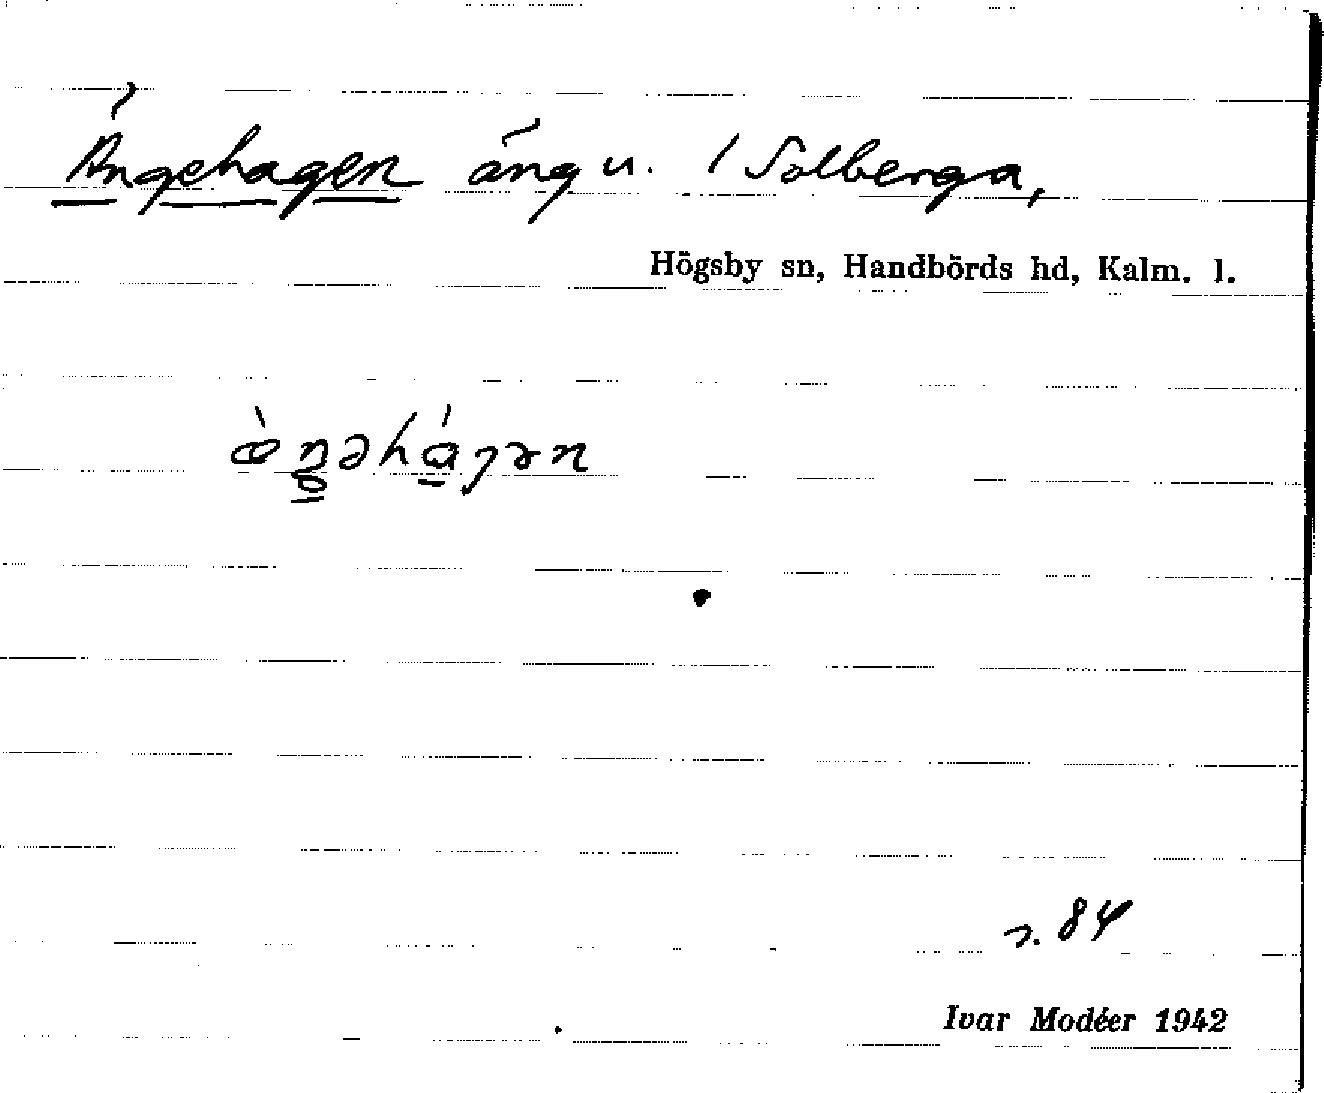 Ängehagen äng u. 1 Solberga,
Högsby sn, Handbörds hd, Kalm. l.
s. 84
Ivar Modéer 1942